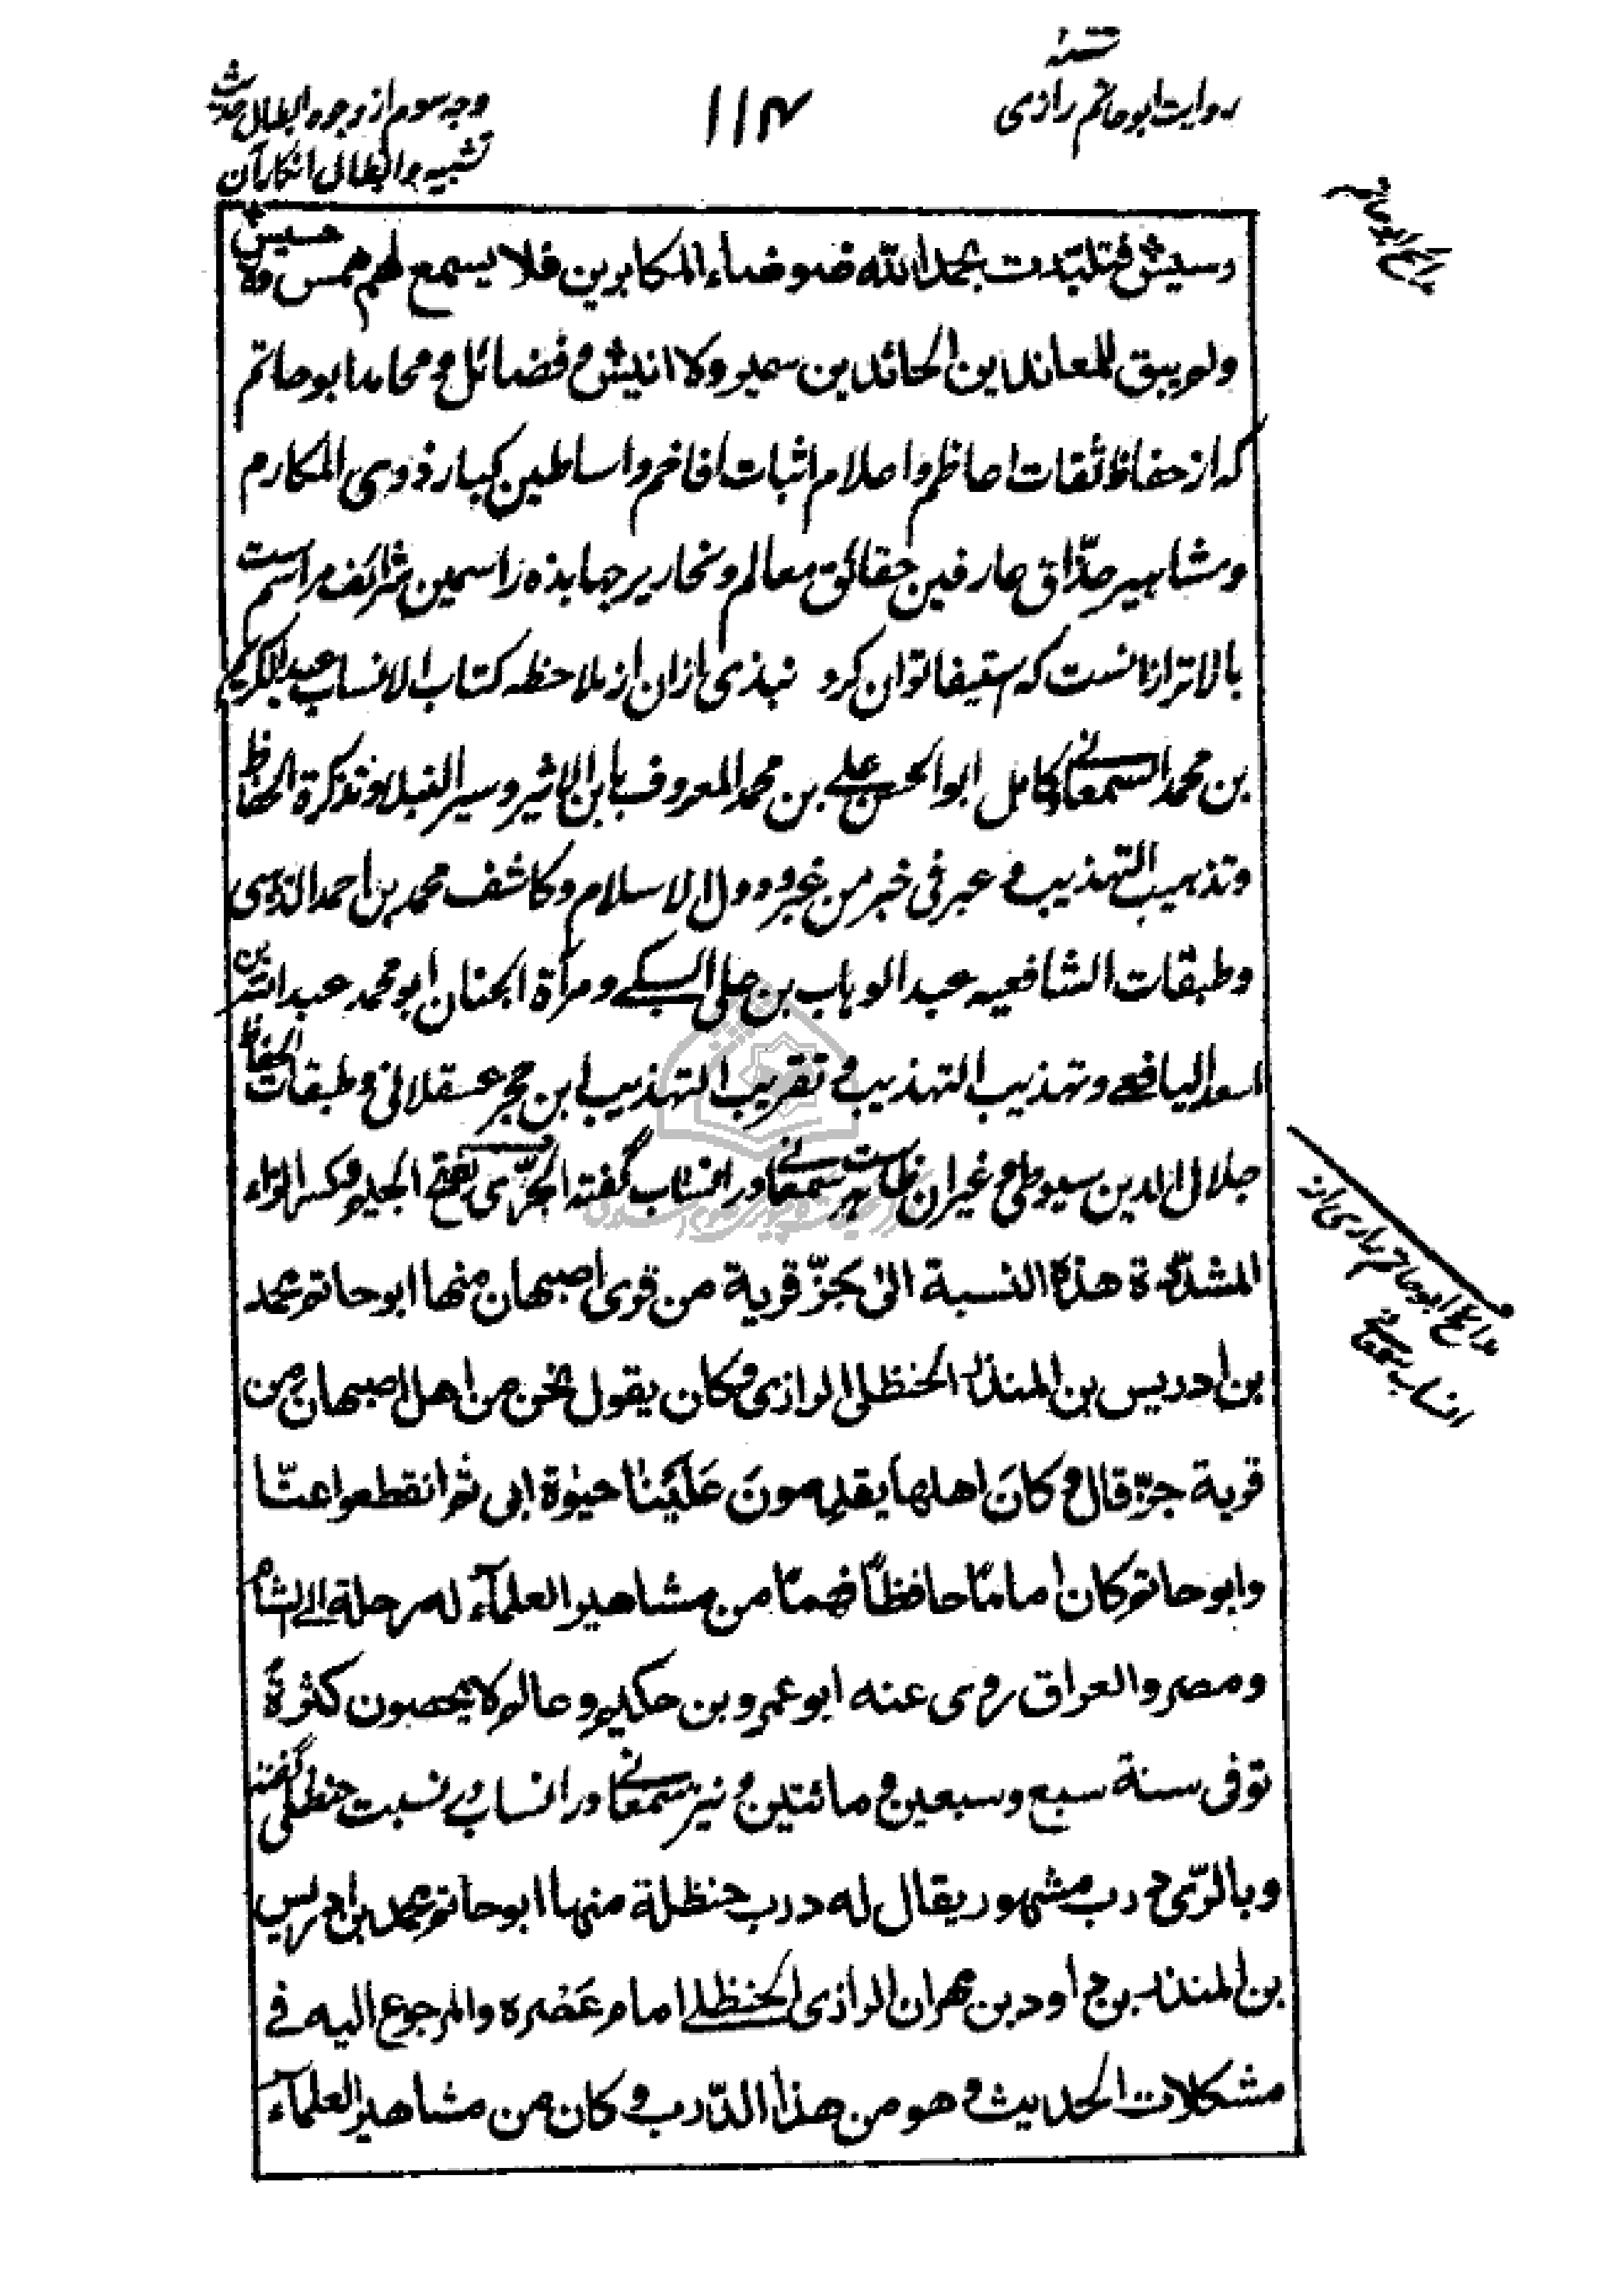 تشبیه
روایت ابو حاتم رازی
۱۱۴
وجه سوم از وجوه ابطال حدیث
تشبیه و ابطال انکار آن
مدائح ابو حاتم
وسیش فتلبّدت بحمد الله ضوضاء المکابرین فلا یسمع لهم همس ولا حسیس
ولم یبق للمعاندین الحائدین سمیر ولا انیس و فضائل و محامد ابو حاتم
که از حفاظ ثقات اعاظم و اعلام اثبات افاخم و اساطین کبار ذوی المکارم
و مشاهیر حذّاق عارفین حقائق معالم و نحاریر جهابذه راسمین شرائف مراسم است
بالاتر ازانست که استیفا توان کرد نبذی ازان از ملاحظه کتاب الانساب عبد الکریم
بن محمد السمعانی و کامل ابو الحسن علی بن محمد المعروف بابن الاثیر و سیر النبلاء و تذکرة الحفاظ
و تذهیب التهذیب و عبر فی خبر من غبر و دول الاسلام و کاشف محمد بن احمد الذهبی
و طبقات الشافعیه عبد الوهاب بن علی السبکی و مرآة الجنان ابو محمد عبد الله بن
اسعد الیافعی و تهذیب التهذیب و تقریب التهذیب ابن حجر عسقلانی و طبقات الحفاظ
جلال الدین سیوطی و غیر ان ظاهرست سمعانی در انساب گفته الجزّی بفتح الجیم و کسر الزاء
المشدّدة هذه النسبة الی جزّ قریة من قری اصبهان منها ابو حاتم محمد
بن ادریس بن المنذر الحنظلی الرازی و کان یقول نحن من اهل اصبهان من
قریة جزّ قال و کانَ اهلها یقدمونَ عَلَیْنا حیٰوة ابی ثم انقطعوا عنّا
و ابو حاتم کان اماماً حافظاً فهماً من مشاهیر العلمآء له رحلة الی الشام
و مصر و العراق روی عنه ابو عمرو بن حکیم و عالم لا یحصون کثرةً
توفی سنة سبع و سبعین و مائتین و نیز سمعانی در انساب در نسبت حنظلی گفته
و بالرّی درب مشهور یقال له درب حنظلة منها ابو حاتم محمد بن ادریس
بن المنذر بن داود بن مهران الرازی الحنظلی امام عَصْره و المرجوع الیه فی
مشکلات الحدیث و هو من هذا الدّرب و کان من مشاهیر العلمآء
مدائح ابو حاتم رازی از
انساب سمعانی